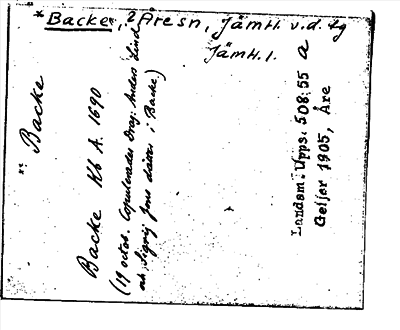 *Backe, 2 Åre sn, Jämtl. v.d. tg
Jämtl.l.
*: Backe
Backe Kb A. 1690
(19 octob. Copulerades Drag: Anders Lind
och Sigrij Jons dåtter i Backe)
Landsm. Upps. 508:55 a
Geijer 1905, Åre